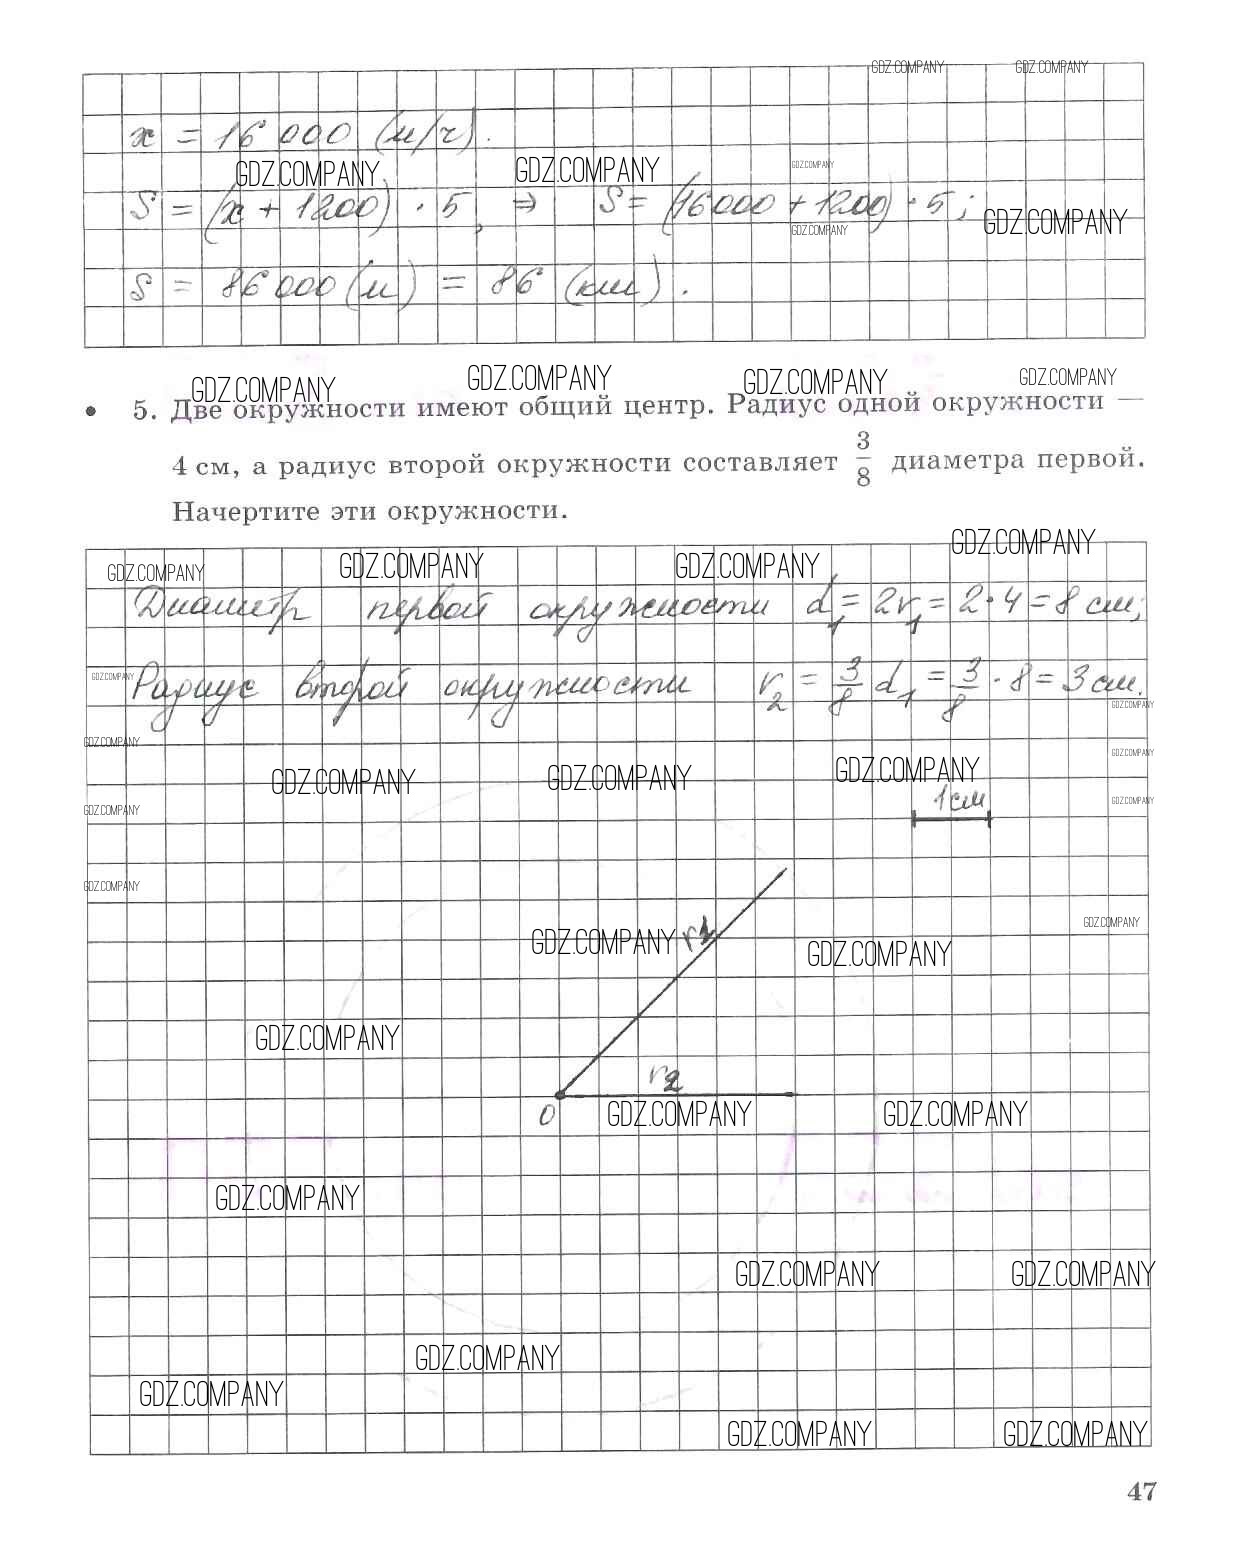 GDZ.COMPANY GDZ.COMPANY
x = 16 000 (м/ч).
GDZ.COMPANY GDZ.COMPANY GDZ.COMPANY
S = (x + 1200) · 5, ⇒ S = (16000 + 1200) · 5;
GDZ.COMPANY GDZ.COMPANY
S = 86 000 (м) = 86 (км).
GDZ.COMPANY GDZ.COMPANY GDZ.COMPANY GDZ.COMPANY
• 5. Две окружности имеют общий центр. Радиус одной окружности —
4 см, а радиус второй окружности составляет 3/8 диаметра первой.
Начертите эти окружности.
GDZ.COMPANY GDZ.COMPANY GDZ.COMPANY GDZ.COMPANY
Диаметр первой окружности d1 = 2r1 = 2 · 4 = 8 см;
GDZ.COMPANY
Радиус второй окружности r2 = 3/8 d1 = 3/8 · 8 = 3 см.
GDZ.COMPANY
GDZ.COMPANY GDZ.COMPANY
GDZ.COMPANY GDZ.COMPANY GDZ.COMPANY
1 см
GDZ.COMPANY GDZ.COMPANY
GDZ.COMPANY
GDZ.COMPANY
GDZ.COMPANY r1 GDZ.COMPANY
GDZ.COMPANY
r2
O GDZ.COMPANY GDZ.COMPANY
GDZ.COMPANY
GDZ.COMPANY GDZ.COMPANY
GDZ.COMPANY
GDZ.COMPANY
GDZ.COMPANY GDZ.COMPANY
47